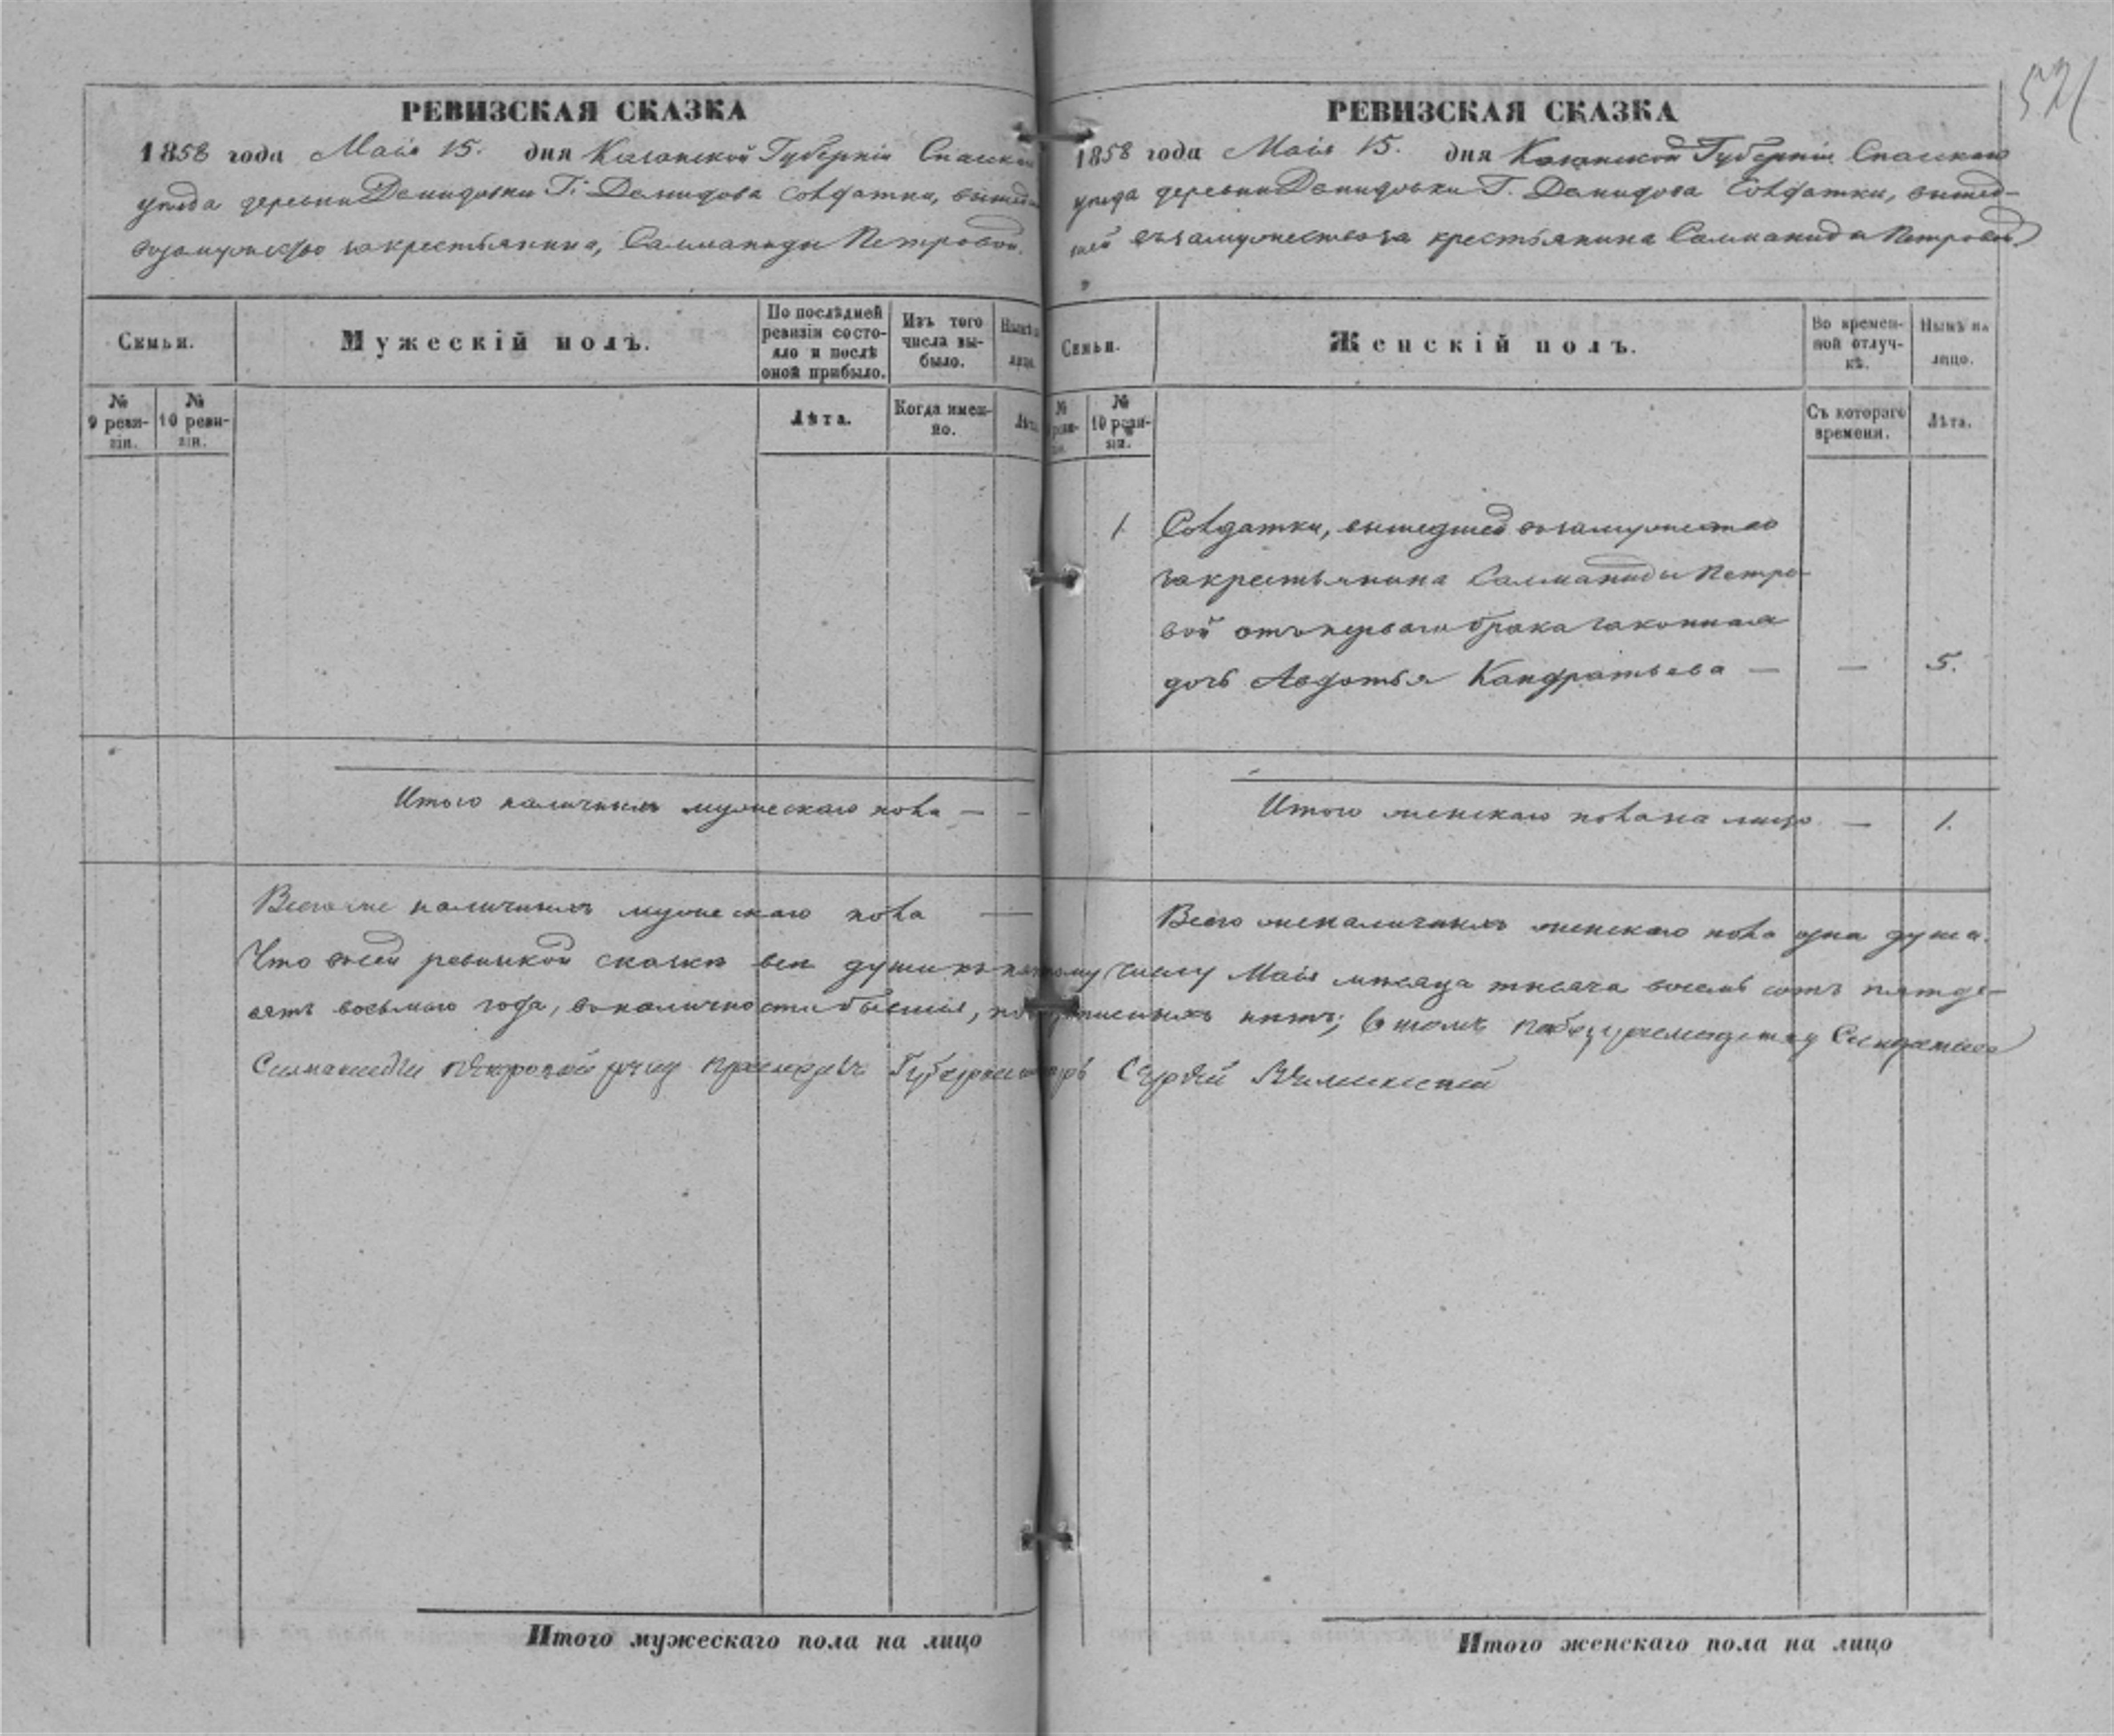 521
РЕВИЗСКАЯ СКАЗКА
1858 года Маія 15. дня Казанской Губерніи Спаскаго
уезда деревни Демидовки Г. Демидова Солдатки,
взамужество закрестьянина, Саламаниды Петровой.
Семьи.
Мужескій полъ.
По послѣдней ревизіи состо-
яло и послѣ
оной прибыло.
Изъ того
числа вы-
было.
№
9 реви-
зіи.
№
10 реви-
зіи.
Лѣта.
Когда имен-
но.
Лѣта
Итого наличныхъ мужескаго пола — —
Всего наличныхъ мужескаго пола —
РЕВИЗСКАЯ СКАЗКА
1858 года Маія 15. дня Казанской Губерніи Спаскаго
уезда деревни Демидовки Г. Демидова Солдатки, вышед-
шей взамужество за крестьянина Саламаниды Петровой
Семьи.
Женскій полъ.
Во времен-
ной отлуч-
кѣ.
Нынѣ на
лицо.
№
10 реви-
зіи.
Съ котораго
времени.
Лѣта.
1 Солдатки, вышедшей взамужество
закрестьянина Саламаниды Петро-
вой отъ перваго брака законная
дочь Авдотья Кандратьева — — 5.
Итого женскаго пола на лицо — 1.
Всего же наличныхъ женскаго пола одна душа.
Что всей ревизкой сказки все души числу Маія месяца тысяча восемь сотъ пятьде-
сятъ восьмаго года, в наличности бывшія, нетъ; Втомъ
Петровой Сергей
Итого мужескаго пола на лицо
Итого женскаго пола на лицо